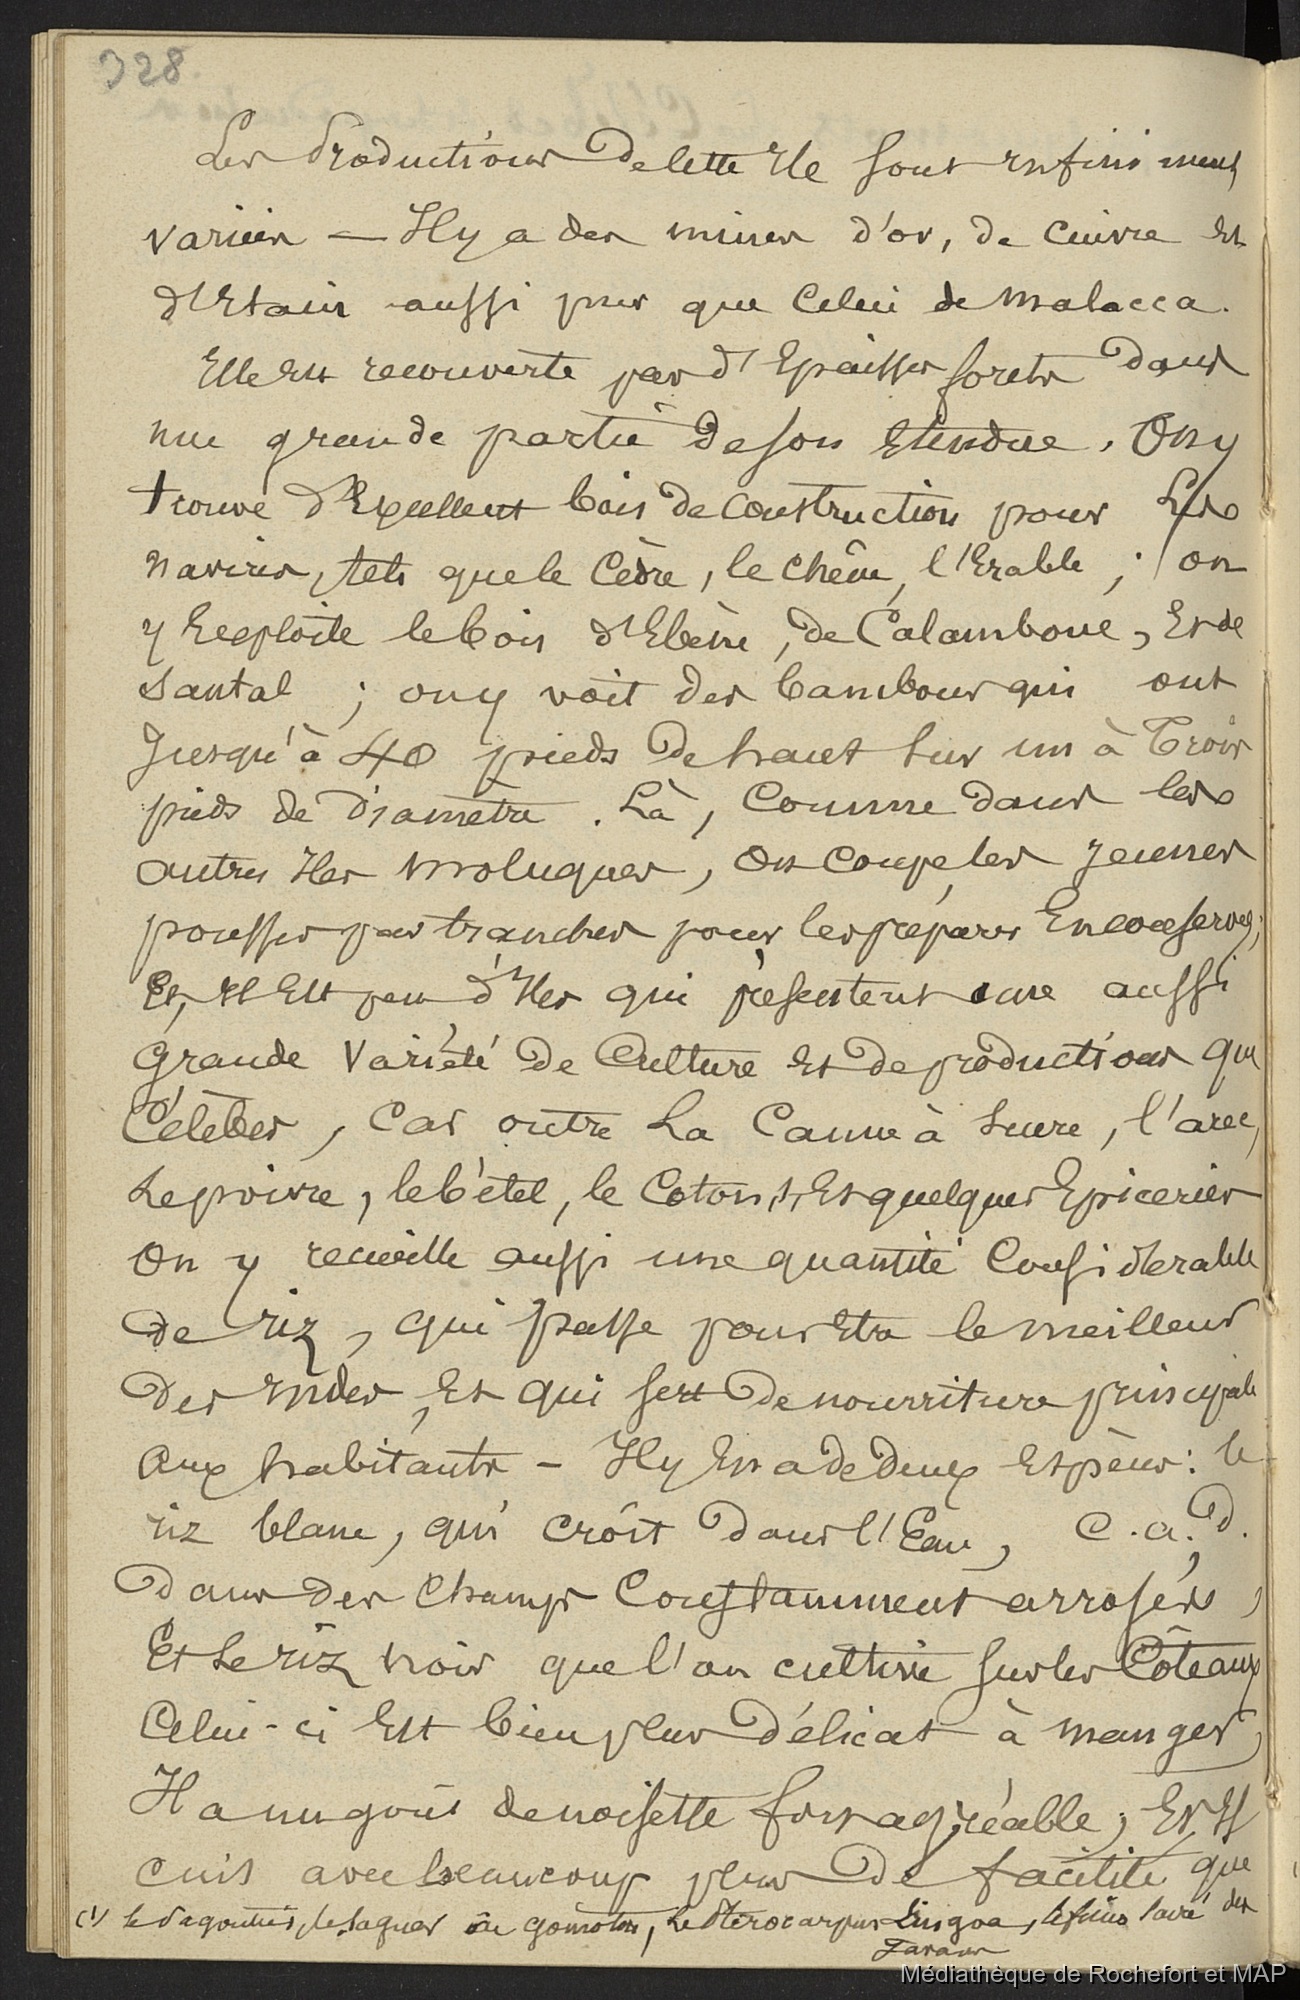 328
Les Productions de cette Ile sont infiniment
variées — Il y a des mines d'or, de cuivre et
d'Etain aussi pur que celui de Malacca.
Elle est recouverte par d'Epaisses forets dans
une grande partie de son Etendue. On y
trouve d'Excellent bois de construction pour les
navires, tels que le Cèdre, le chêne, l'Erable ; on
y Exploite le bois d'Ebène, de Calambouc, Et de
Santal ; on y voit des bambous qui ont
Jusqu'à 40 pieds de haut sur un à Trois
pieds de Diamètre. Là, Comme dans les
autres Iles Moluques, on coupe les Jeunes
pousses par tranches pour les préparer En conserves;
Et, Il Est peu d'Iles qui présentent une aussi
Grande Variété de Culture Et de productions que
Célèbes, Car outre La Canne à Sucre, l'arec,
Le poivre, le bétel, le Coton, Et quelques Epiceries
On y recueille aussi une quantité Considérable
de riz, qui passe pour Etre le meilleur
des Indes, Et qui sert de nourriture principale
aux habitants — Il y En a de deux Espèces: le
riz blanc, qui croît dans l'Eau, c.a.d.
dans des Champs Constamment arrosés,
Et Le riz noir que l'on cultive sur les Côteaux
Celui-ci Est bien plus Délicat à manger,
Il a un goût de noisette fort agréable, Et Il
cuit avec beaucoup plus de facilité que
(1) le Sagoutier, le Saguer ou gomoton, Le Pterocarpus Lingoa, des
Javans
Médiathèque de Rochefort et MAP